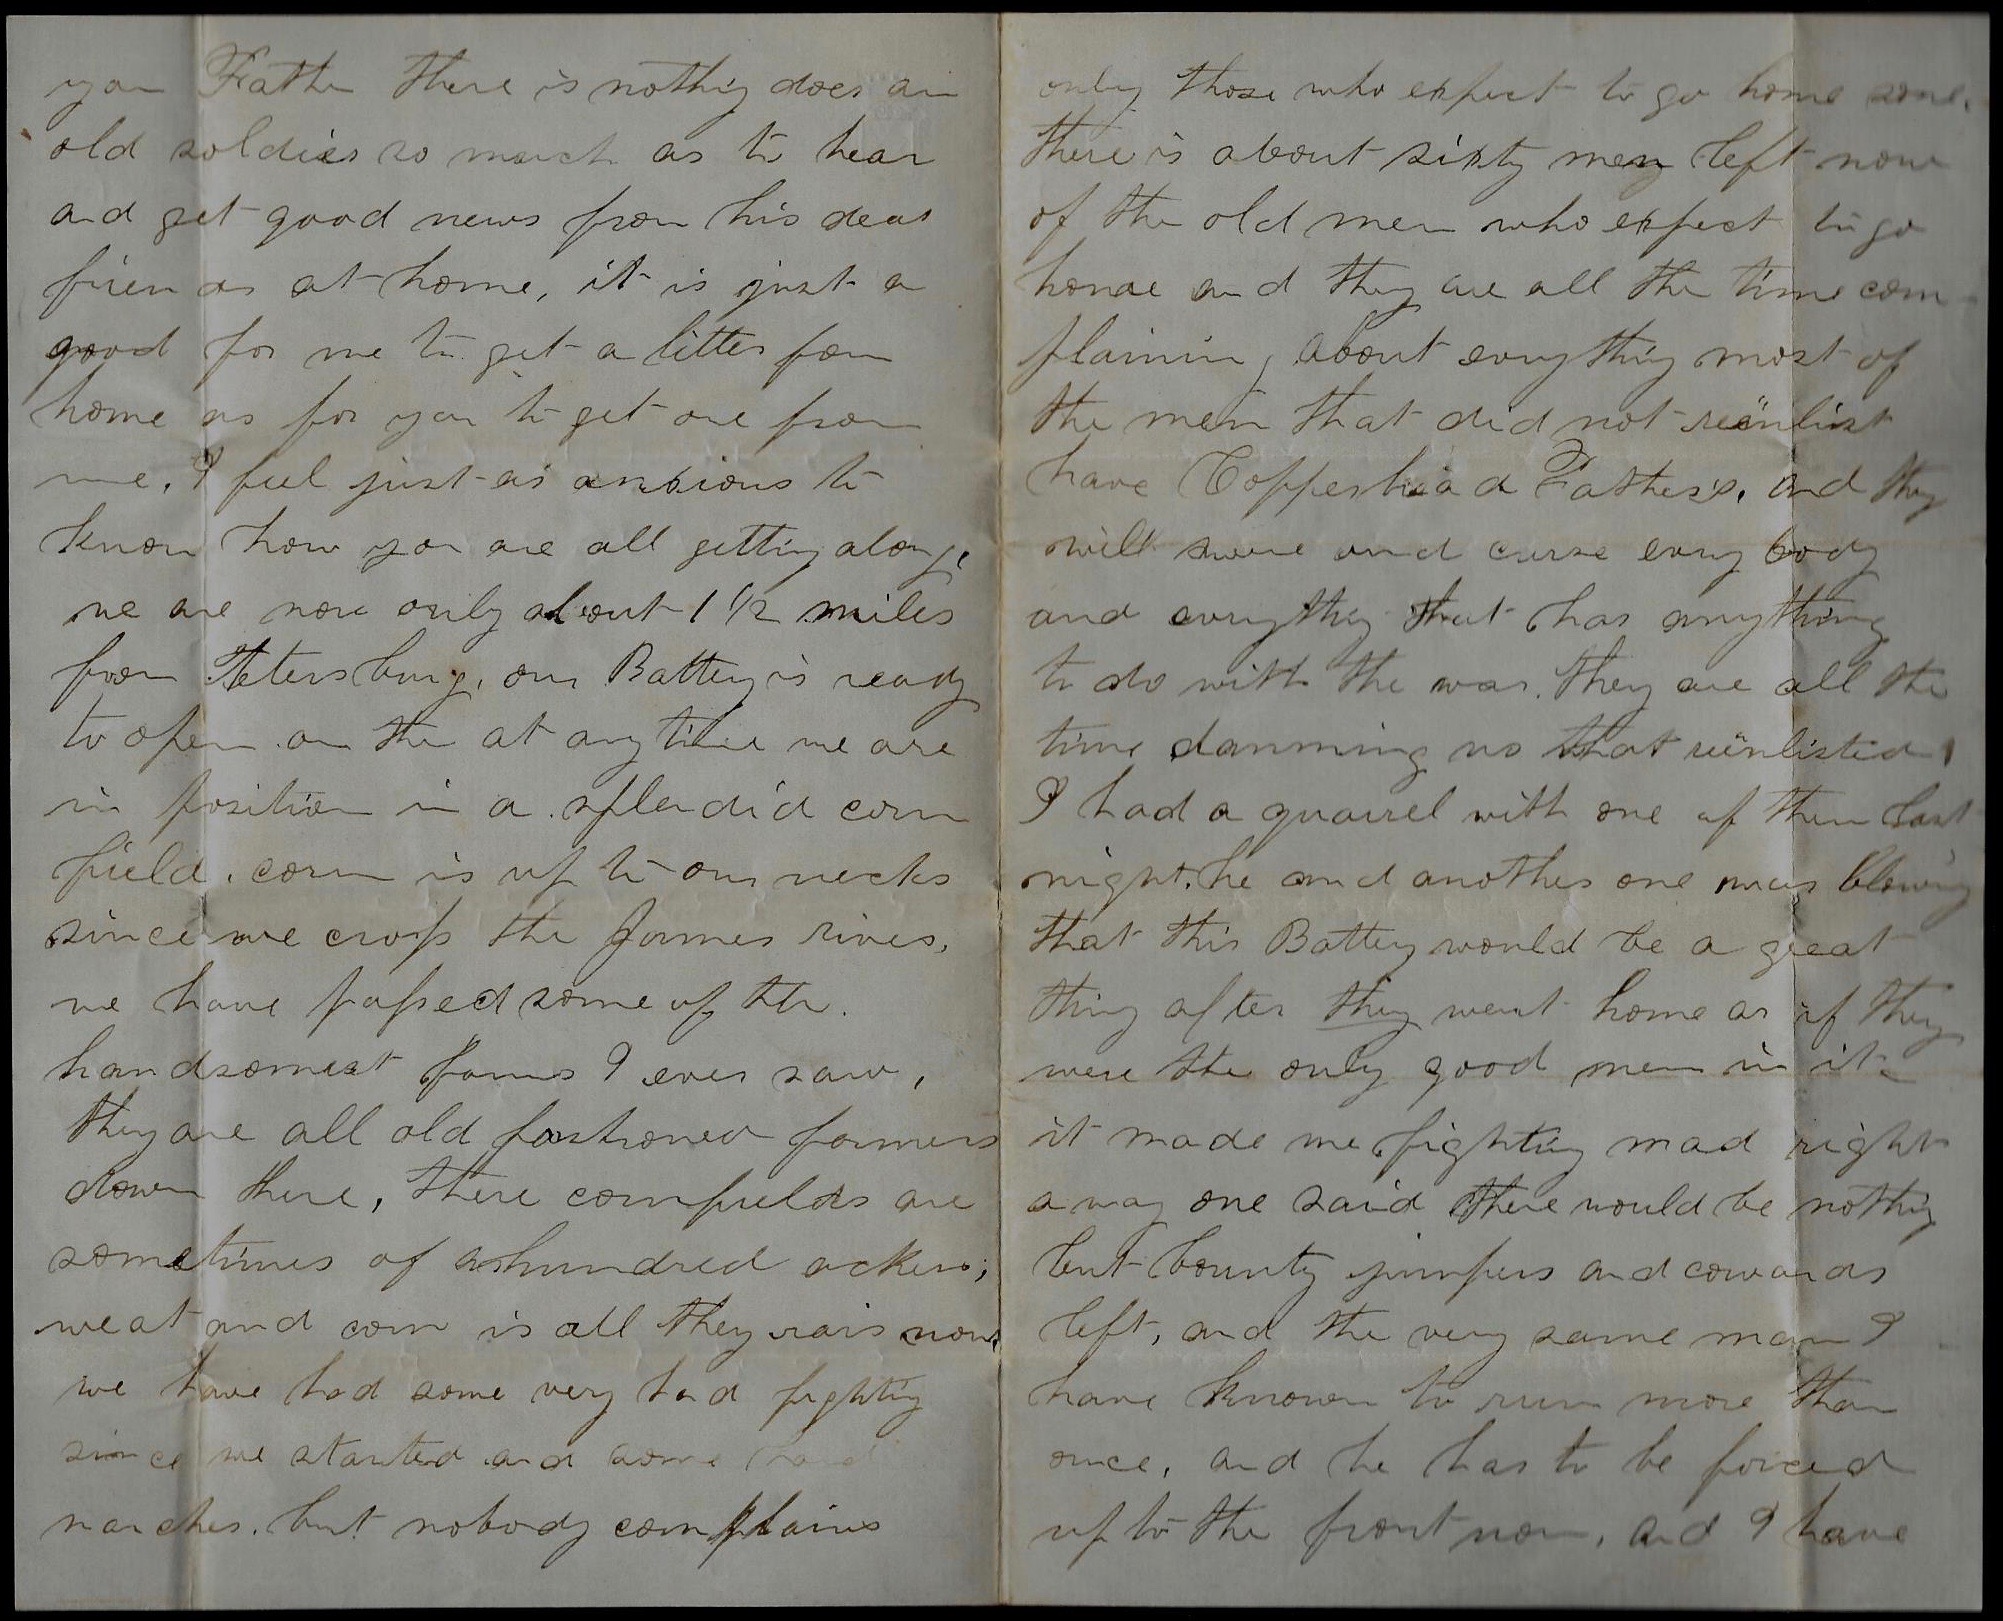 you Father there is nothig does an
old soldier so much as to hear
and get good news from his dear
friends at home, it is just a
good for me to get a letter from
home as for you to get one from
me. I feel just as anxious to
know how you are all getting along,
we are now only about 1 1/2 miles
from Petersburg, our Battery is ready
to open on the at any time we are
in position in a splendid corn
field. corn is up to our necks
since we cross the James river,
we have passed some of the.
handsomest farms I ever saw,
they are all old fashioned farmers
down there, there cornfields are
sometimes of a hundred ackers;
weat and corn is all they rais now,
we have had some very hard fighting
since we started and some hard
marches. but nobody complains
only those who expect to go home soon.
there is about sixty men left now
of the old men who expect to go
home and they are all the time com-
plaining about everything most of
the men that did not reënlist
have Copperhead Fathers, and they
will swere and curse every body
and everything that has anything
to do with the war. they are all the
time damming us that reënlisted,
I had a quarrel with one of them last
night. he and another one was blowing
that this Battery would be a great
thing after they went home as if they
were the only good men in it.
it made me fighting mad right
away one said there would be nothing
but bounty jumpers and cowards
left, and the very same man I
have known to run more than
once, and he has to be forced
up to the front now, and I have